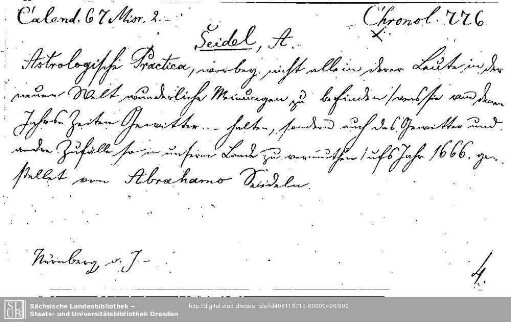 Calend. 67 Misc. 2.
Chronol. 776
Seidel, A.
Astrologische Practica, worbey nicht allein derer Leute in der
neuen Welt wunderliche Meinungen zu befinden / was sie von denen
Jahrs Zeiten Gewitter... halten, sondern auch des Gewitters und
andre Zufälle so in unserm Lande zu vermuthen / ufs Jahr 1666. ge-
stellet von Abrahamo Seideln.
Nürnberg o. J.
4.
Sächsische Landesbibliothek –
Staats- und Universitätsbibliothek Dresden